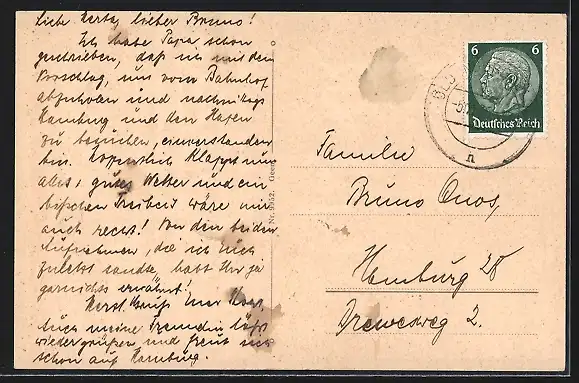 Liebe Herta, lieber Bruno!
Ich habe Papa schon
geschrieben, daß ich mit dem
Vorschlag, uns vom Bahnhof
abzuholen und nachmittags
Hamburg und den Hafen
zu besuchen, einverstanden
bin. Hoffentlich klappt nun
alles, gutes Wetter und ein
bißchen Freizeit wäre mir
auch recht! Von den beiden
Aufnahmen, die ich Euch
zuletzt sandte, habt Ihr ja
garnichts erwähnt!
Herzl. Grüße
Euch meine Freundin läßt
wiedergrüßen und freut sich
schon auf Hamburg.
Nr. 9932.
6 6
Deutsches Reich
n
Familie
Bruno Onos,
Hamburg
Drewesweg 2.